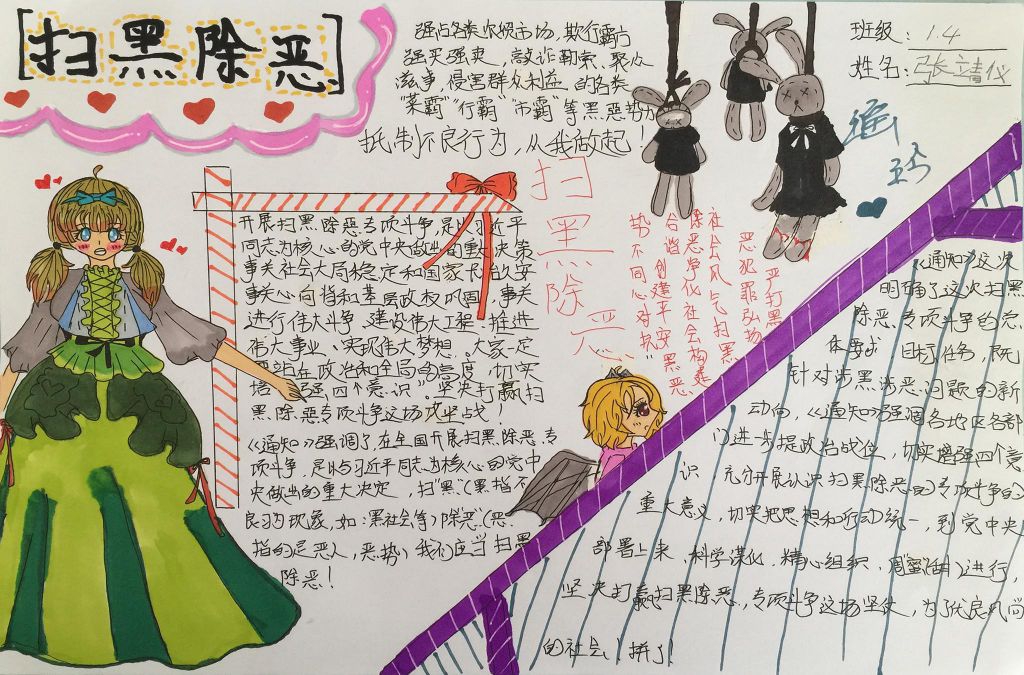 扫黑除恶
强占各类农贸市场,欺行霸市
强买强卖,敲诈勒索、聚众
滋事,侵害群众利益的各类
"菜霸""行霸""市霸"等黑恶势力
抵制不良行为,从我做起!
班级:1.4
姓名:张靖仪
扫黑除恶
严打黑
恶犯罪弘扬
社会风气扫黑
除恶净化社会构建
合谐创建平安黑恶
势不同心对抗
开展扫黑除恶专项斗争,是以习近平
同志为核心的党中央做出的重大决策
事关社会大局稳定和国家长治久安
事关人心向背和基层政权巩固,事关
进行伟大斗争、建设伟大工程、推进
伟大事业、实现伟大梦想。大家一定
站在政治和全局的高度,切实
增强"四个意识"。坚决打赢扫
黑除恶专项斗争这场攻坚战!
《通知》强调了,在全国开展扫黑除恶专
项斗争,是以习近平同志为核心的党中
央做出的重大决定,扫"黑"(黑指不
良的现象,如:黑社会等)除"恶"(恶
指的是恶人,恶势)我们应当扫黑
除恶!
《通知》这次
明确了这次扫黑
除恶专项斗争的总
体要求 目标任务,既
针对涉黑涉恶问题的新
动向,《通知》强调各地区各部
门进步提政治战位,切实增强四个意
识 充分开展认识扫黑除恶的专项斗争的
重大意义,切实把思想和行动统一,到党中央
部署上来,科学谋化、精心组织、周密进行,
坚决打赢扫黑除恶,专项斗争这场坚仗,为了优良风尚
的社会,拼了!